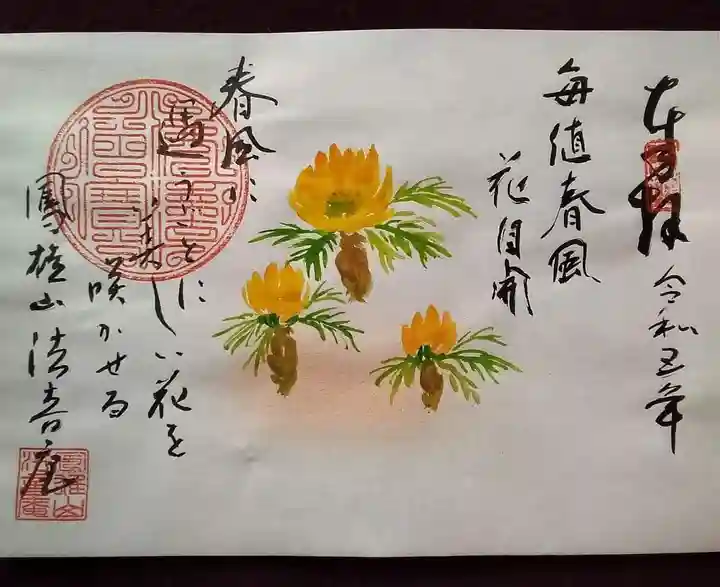 奉拝
令和五年
毎値春風
花自開
春風に
遇うごとに
美しい花を
咲かせる
鳳雄山法音庵